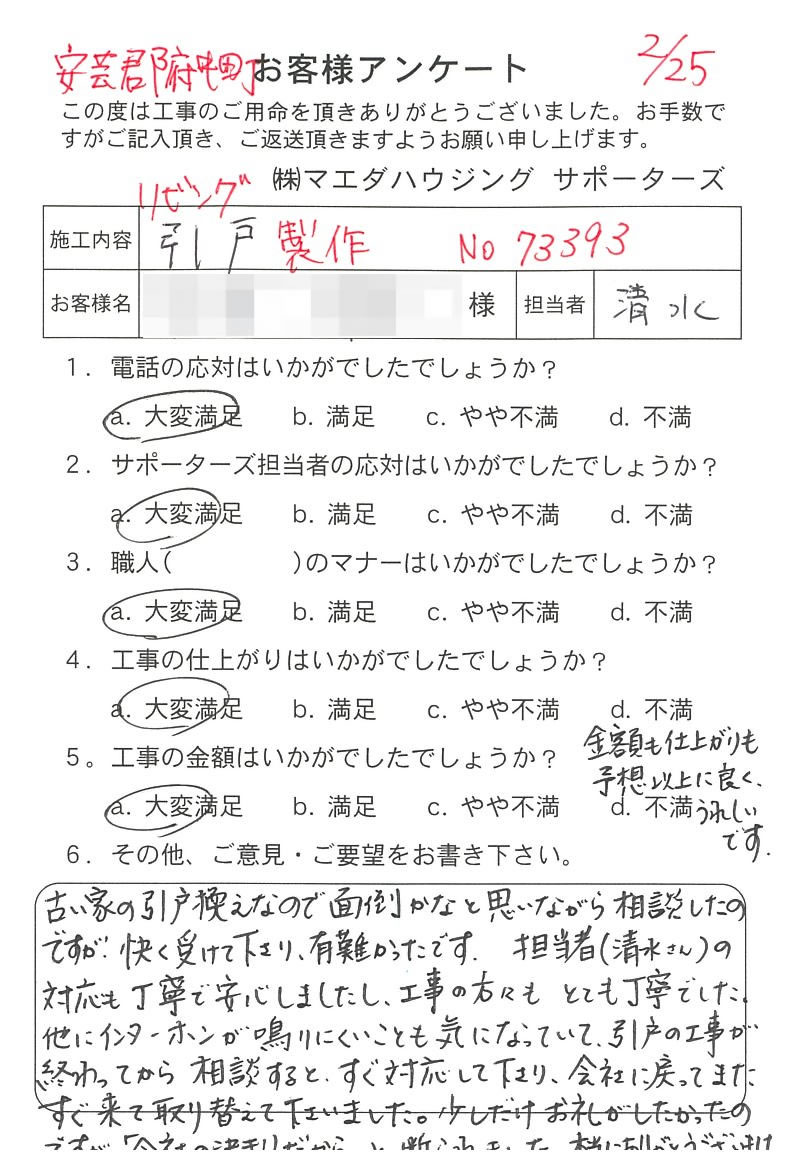 安芸郡府中町 お客様アンケート 2/25
この度は工事のご用命を頂きありがとうございました。お手数で
すがご記入頂き、ご返送頂きますようお願い申し上げます。
㈱マエダハウジング サポーターズ
リビング
施工内容 引戸 製作 No 73393
お客様名 様 担当者 清水
1. 電話の応対はいかがでしたでしょうか？
a. 大変満足 b. 満足 c. やや不満 d. 不満
2. サポーターズ担当者の応対はいかがでしたでしょうか？
a. 大変満足 b. 満足 c. やや不満 d. 不満
3. 職人( )のマナーはいかがでしたでしょうか？
a. 大変満足 b. 満足 c. やや不満 d. 不満
4. 工事の仕上がりはいかがでしたでしょうか？
a. 大変満足 b. 満足 c. やや不満 d. 不満
5。工事の金額はいかがでしたでしょうか？
a. 大変満足 b. 満足 c. やや不満 d. 不満
金額も仕上がりも
予想以上に良く、
うれしい
です.
6. その他、ご意見・ご要望をお書き下さい。
古い家の引戸換えなので面倒かなと思いながら相談したの
ですが、快く受けて下さり、有難かったです. 担当者(清水さん)の
対応も丁寧で安心しましたし、工事の方々もとても丁寧でした.
他にインターホンが鳴りにくいことも気になっていて、引戸の工事が
終わってから相談すると、すぐ対応して下さり、会社に戻ってまた
すぐ来て取り替えて下さいました。少しだけお礼がしたかったの
ですが「会社の決まりだから」と断られました. 本当にありがとうございます